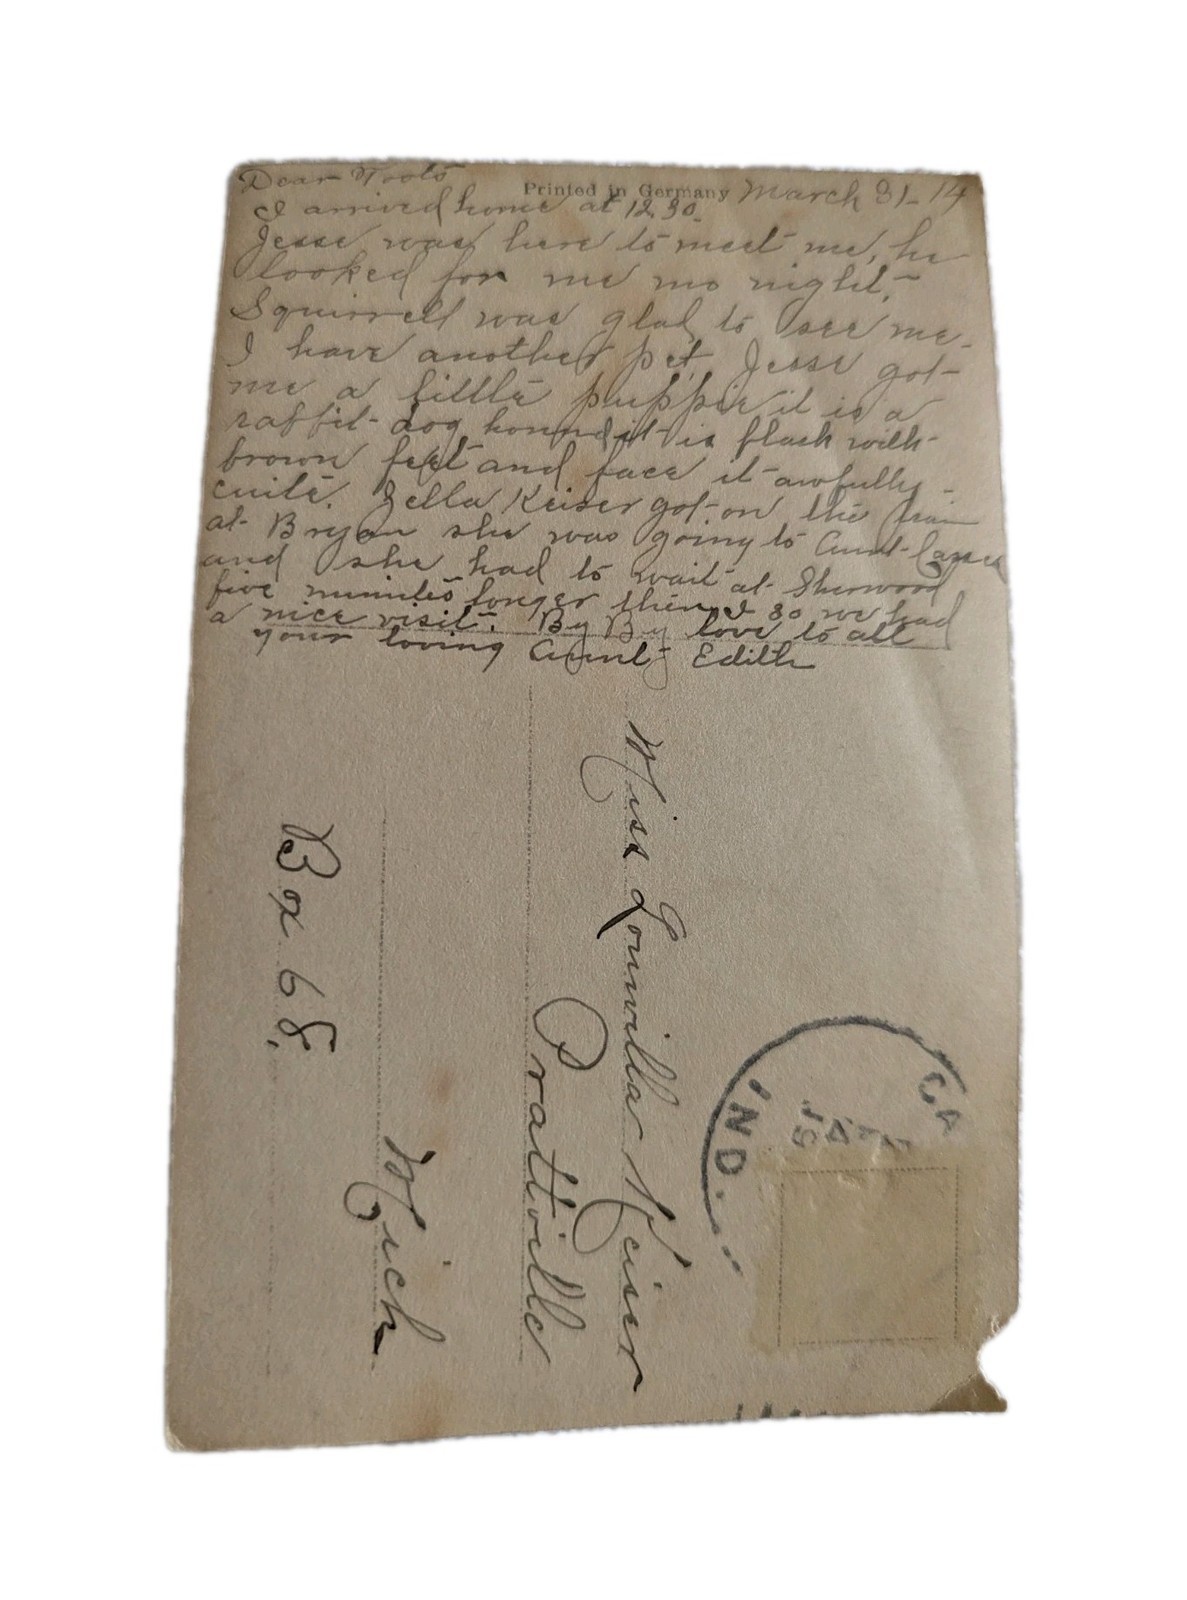 Dear Toots
Printed in Germany March 31-14
I arrived home at 12.30.
Jesse was here to meet me, he
looked for me mo night,
Squirrell was glad to see me.
I have another pet, Jesse got
me a little puppie it is a
rabbit-dog hound it is black with
brown feet and face it awfully
cute. Zella Keiser got on the train
at Bryan she was going to Aunt
and she had to wait at Sherwood
five minutes longer then I so we had
a nice visit. By By love to all
your loving Aunt Edith
Miss Louvilla Keiser
Prattville
Mich
Box 68.
GA
IND.